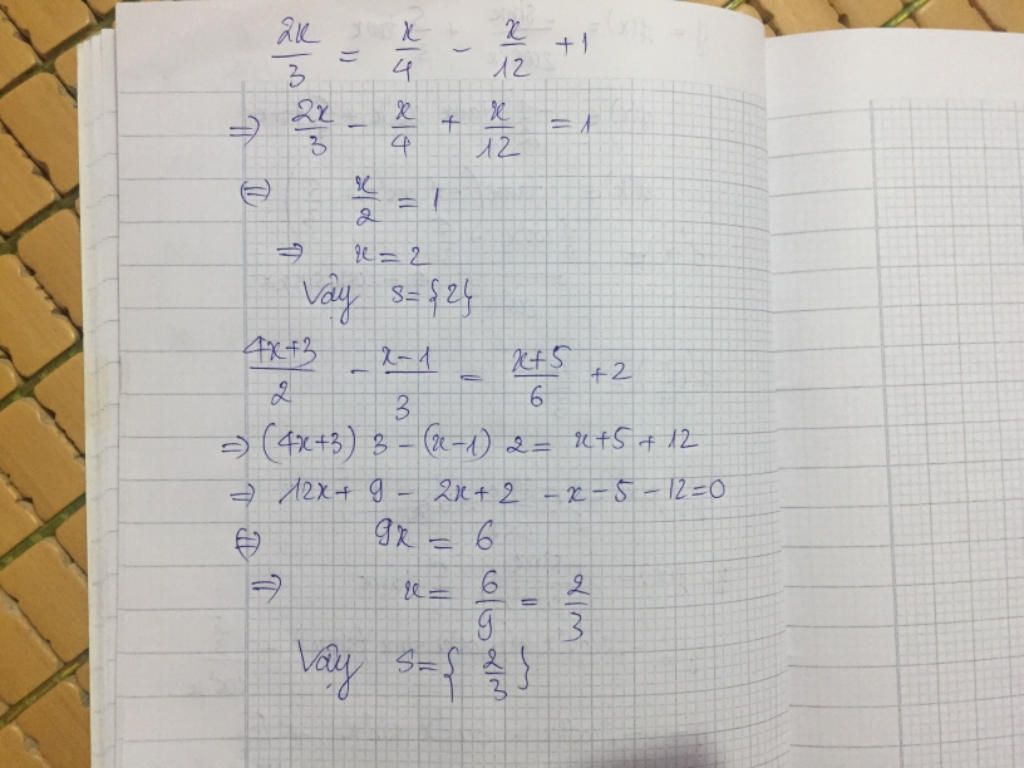 2x/3 = x/4 - x/12 + 1
=> 2x/3 - x/4 + x/12 = 1
<=> x/2 = 1
=> x = 2
Vậy S = {2}
4x+3/2 - x-1/3 = x+5/6 + 2
=> (4x+3) 3 - (x-1) 2 = x+5+12
=> 12x + 9 - 2x + 2 - x - 5 - 12 = 0
<=> 9x = 6
=> x = 6/9 = 2/3
Vậy S = {2/3}